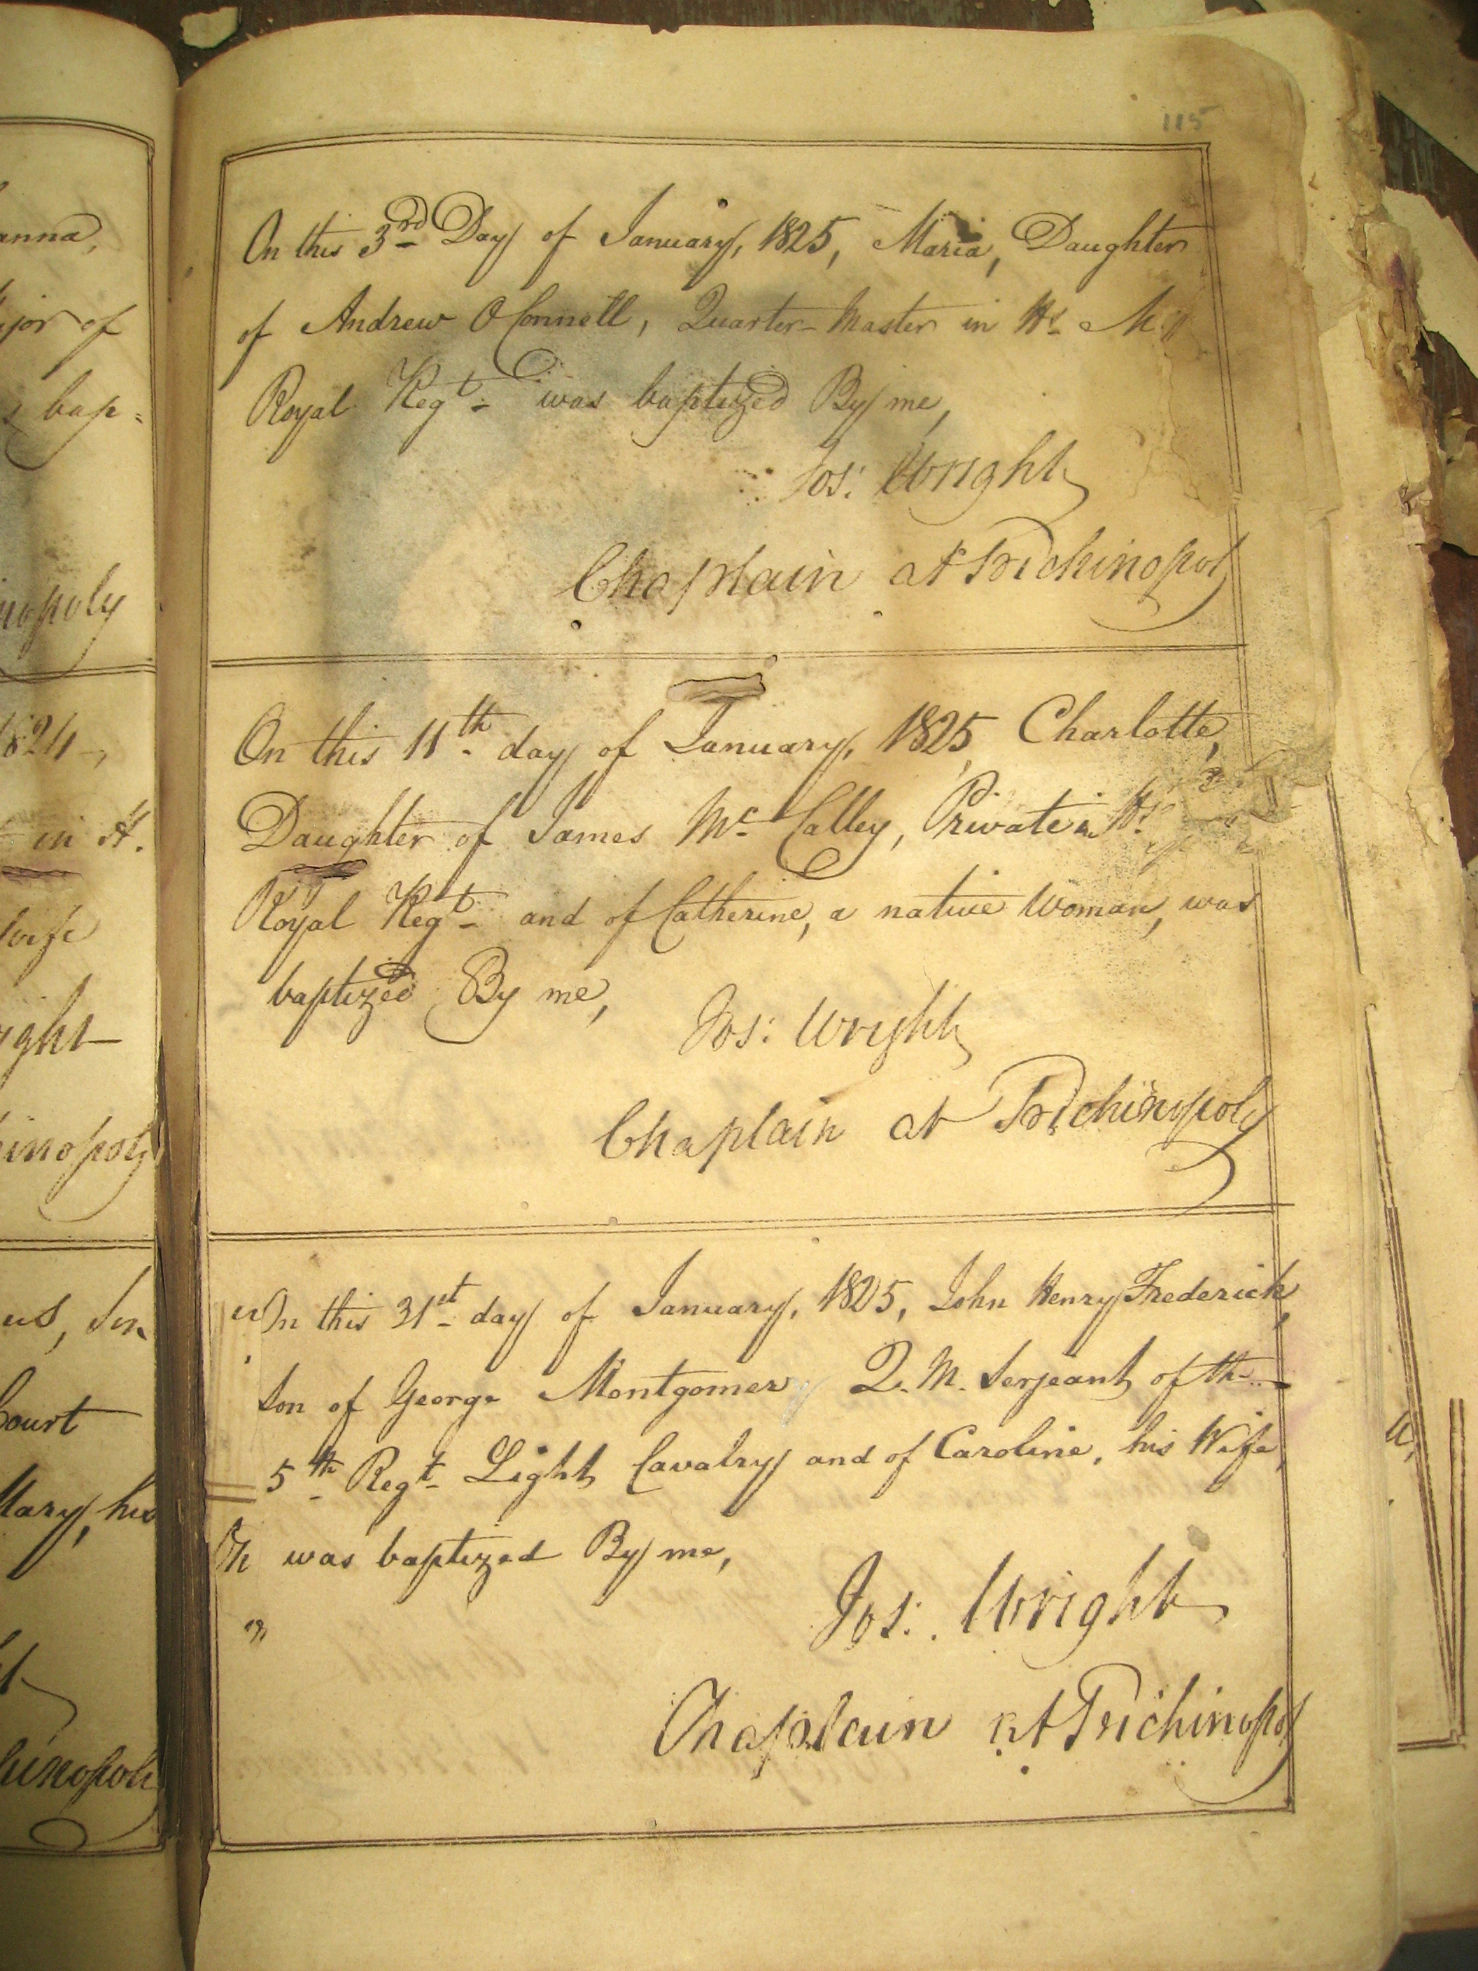 anna,
jor of
bap=
nopoly
1824,
in H.
Wife
ight
inopoly
us, Son
Court
Mary, his
hinopoly
115
On this 3rd Day of January, 1825, Maria, Daughter
of Andrew O Connell, Quarter-Master in Hs. M
Royal Regt. was baptized By me,
Jos: Wright
Chaplain at Trichinopoly
On this 11th day of January, 1825, Charlotte,
Daughter of James Mc Calley, Private in Hs.
Royal Regt. and of Catherine, a native Woman, was
baptized By me,
Jos: Wright
Chaplain at Trichinopoly
On this 31st day of January, 1825, John Henry Frederick,
Son of George Montgomery Q. M. Serjeant of the
5th Regt. Light Cavalry and of Caroline, his Wife,
was baptized By me,
Jos: Wright
Chaplain at Trichinopoly